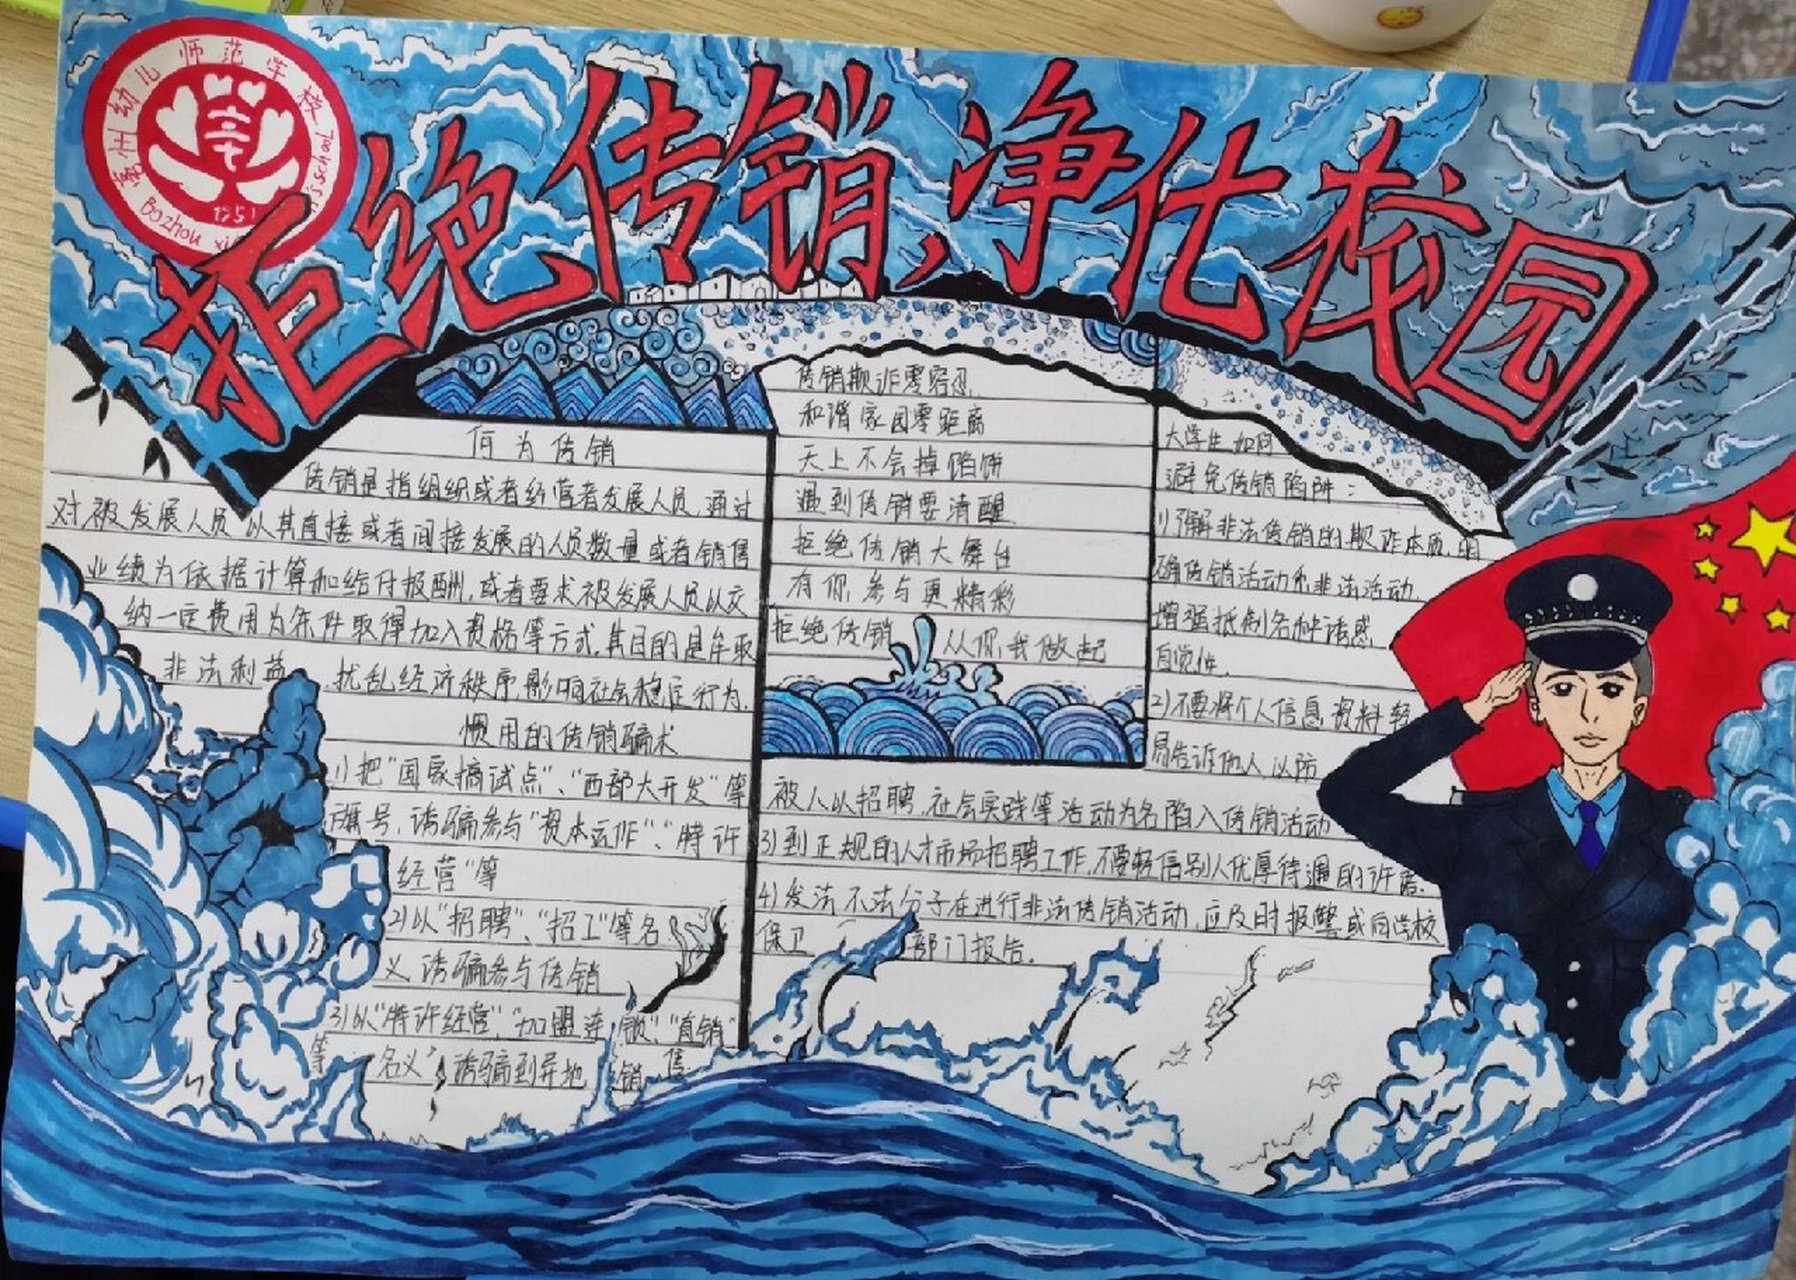 幼儿师范学校
1951
Bozhou
school
拒绝传销,净化校园
何为传销
传销是指组织或者经营者发展人员,通过
对被发展人员以其直接或者间接发展的人员数量或者销售
业绩为依据计算和给付报酬,或者要求被发展人员以交
纳一定费用为条件取得加入资格等方式,其目的是牟取
非法利益 扰乱经济秩序影响社会稳定行为.
惯用的传销骗术
1)把“国家搞试点”、“西部大开发”等
旗号,诱骗参与“资本运作”、“特许
经营”等
2)以“招聘”、“招工”等名
义诱骗参与传销
3)以“特许经营”,“加盟连锁”,“直销”
等 名义 诱骗到异地 销售
传销欺诈零容忍,
和谐家园零距离
天上不会掉馅饼
遇到传销要清醒
拒绝传销大舞台
有你参与更精彩
拒绝传销 从你我做起
大学生如何
避免传销陷阱:
1)了解非法传销的欺诈本质,明
确传销活动亦非法活动,
增强抵制各种诱惑
自觉性.
2)不要将个人信息资料轻
易告诉他人以防
被人以招聘,社会实践等活动为名陷入传销活动
3)到正规的人才市场招聘工作,不要轻信别人优厚待遇的许诺.
4)发法不法分子在进行非法传销活动,应及时报警或向学校
保卫 部门报告.